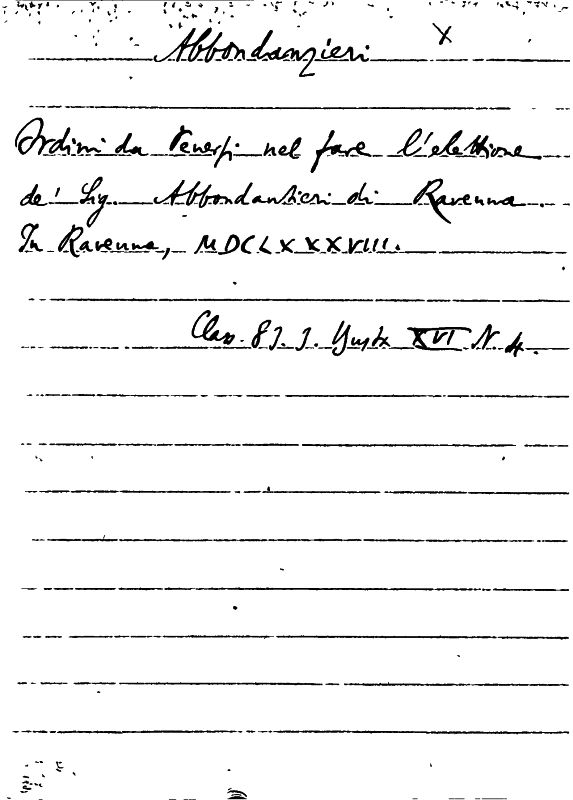 Abbondanzieri X
Ordini da tenersi nel fare l'elettione
de' Sig. Abbondantieri di Ravenna.
In Ravenna, MDCLXXXVIII.
Class. 8 XVI N. 4.